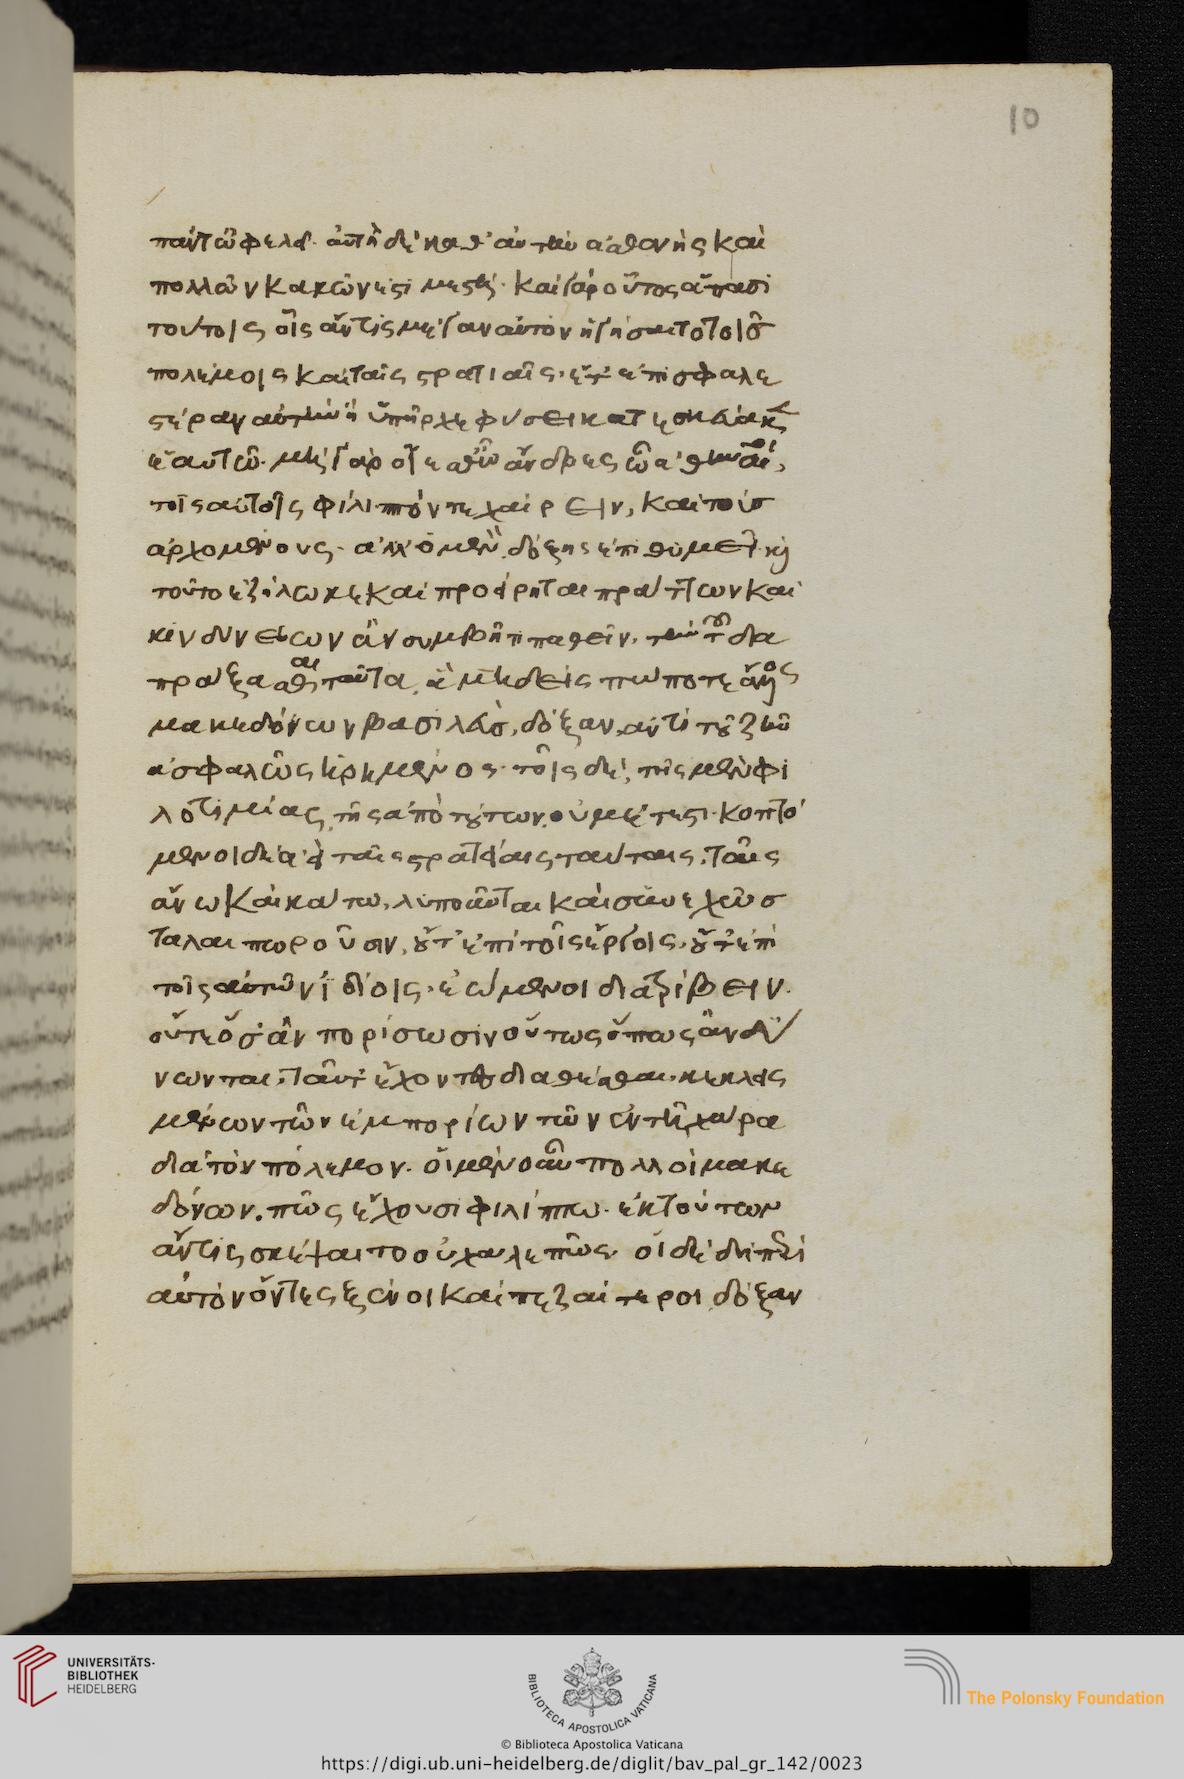 10
πάντ' ὠφελεῖ. αὐτὴ δὲ καθ' αὑτὴν ἀσθενὴς καὶ
πολλῶν κακῶν ἐστι μεστή. καὶ γὰρ οὗτος ἅπασι
τούτοις οἷς ἄν τις μέγαν αὐτὸν ἡγήσαιτο τοῖς
πολέμοις καὶ ταῖς στρατιαῖς. ἔτ' ἐπισφαλε
στέραν αὐτὴν ἢ ὑπῆρχε φύσει κατεσκεύακεν
ἑαυτῶ. μὴ γὰρ οἴεσθε ὦ ἄνδρες ἀθηναῖοι,
τοῖς αὐτοῖς φίλιππόν τε χαίρειν, καὶ τοὺς
ἀρχομένους. ἀλλ' ὁ μὲν δόξης ἐπιθυμεῖ. καὶ
τοῦτο ἐζήλωκε καὶ προήρηται πράττων καὶ
κινδυνεύων ἂν συμβῆ τι παθεῖν. τὴν τοῦ δια
πράξασθαι ταῦτα, ἃ μηδεὶς πώποτε ἄλλος
μακεδόνων βασιλεὺς, δόξαν, ἀντὶ τοῦ ζῆν
ἀσφαλῶς ἡρημένος. τοῖς δὲ, τῆς μὲν φι
λοτιμίας τῆς ἀπὸ τούτων, οὐ μέτεστι. κοπτό
μενοι δὲ ἀεὶ ταῖς στρατείαις ταύταις, ταῖς
ἄνω καὶ κάτω, λυποῦνται καὶ συνεχῶς
ταλαιπωροῦσιν, οὔτ' ἐπὶ τοῖς ἔργοις. οὔτ' ἐπὶ
τοῖς αὑτῶν ἰδίοις. ἐώμενοι διατρίβειν.
οὔτε ὅσ' ἂν πορίσωσιν οὕτως ὅπως ἂν δύ
νωνται, ταῦτ' ἔχοντες διαθέσθαι. κεκλεισ
μένων τῶν ἐμπορίων τῶν ἐν τῆ χώρα
διὰ τὸν πόλεμον. οἱ μὲν οὖν πολλοὶ μακε
δόνων. πῶς ἔχουσι φιλίππω. ἐκ τούτων
ἄν τις σκέψαιτο οὐ χαλεπῶς. οἱ δὲ δὴ περὶ
αὐτὸν ὄντες ξένοι καὶ πεζαίτεροι δόξαν
UNIVERSITÄTS-
BIBLIOTHEK
HEIDELBERG
BIBLIOTECA APOSTOLICA VATICANA
The Polonsky Foundation
© Biblioteca Apostolica Vaticana
https://digi.ub.uni-heidelberg.de/diglit/bav_pal_gr_142/0023